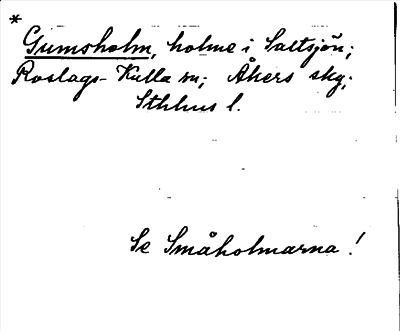 *
Gumsholm, holme i Saltsjön;
Roslags-Kulla sn; Åkers skg;
Sthlms l.
Se Småholmarna!